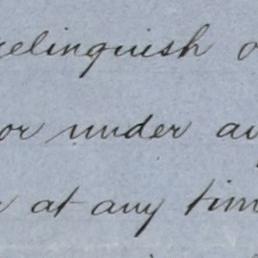 relinquish
or under
at any